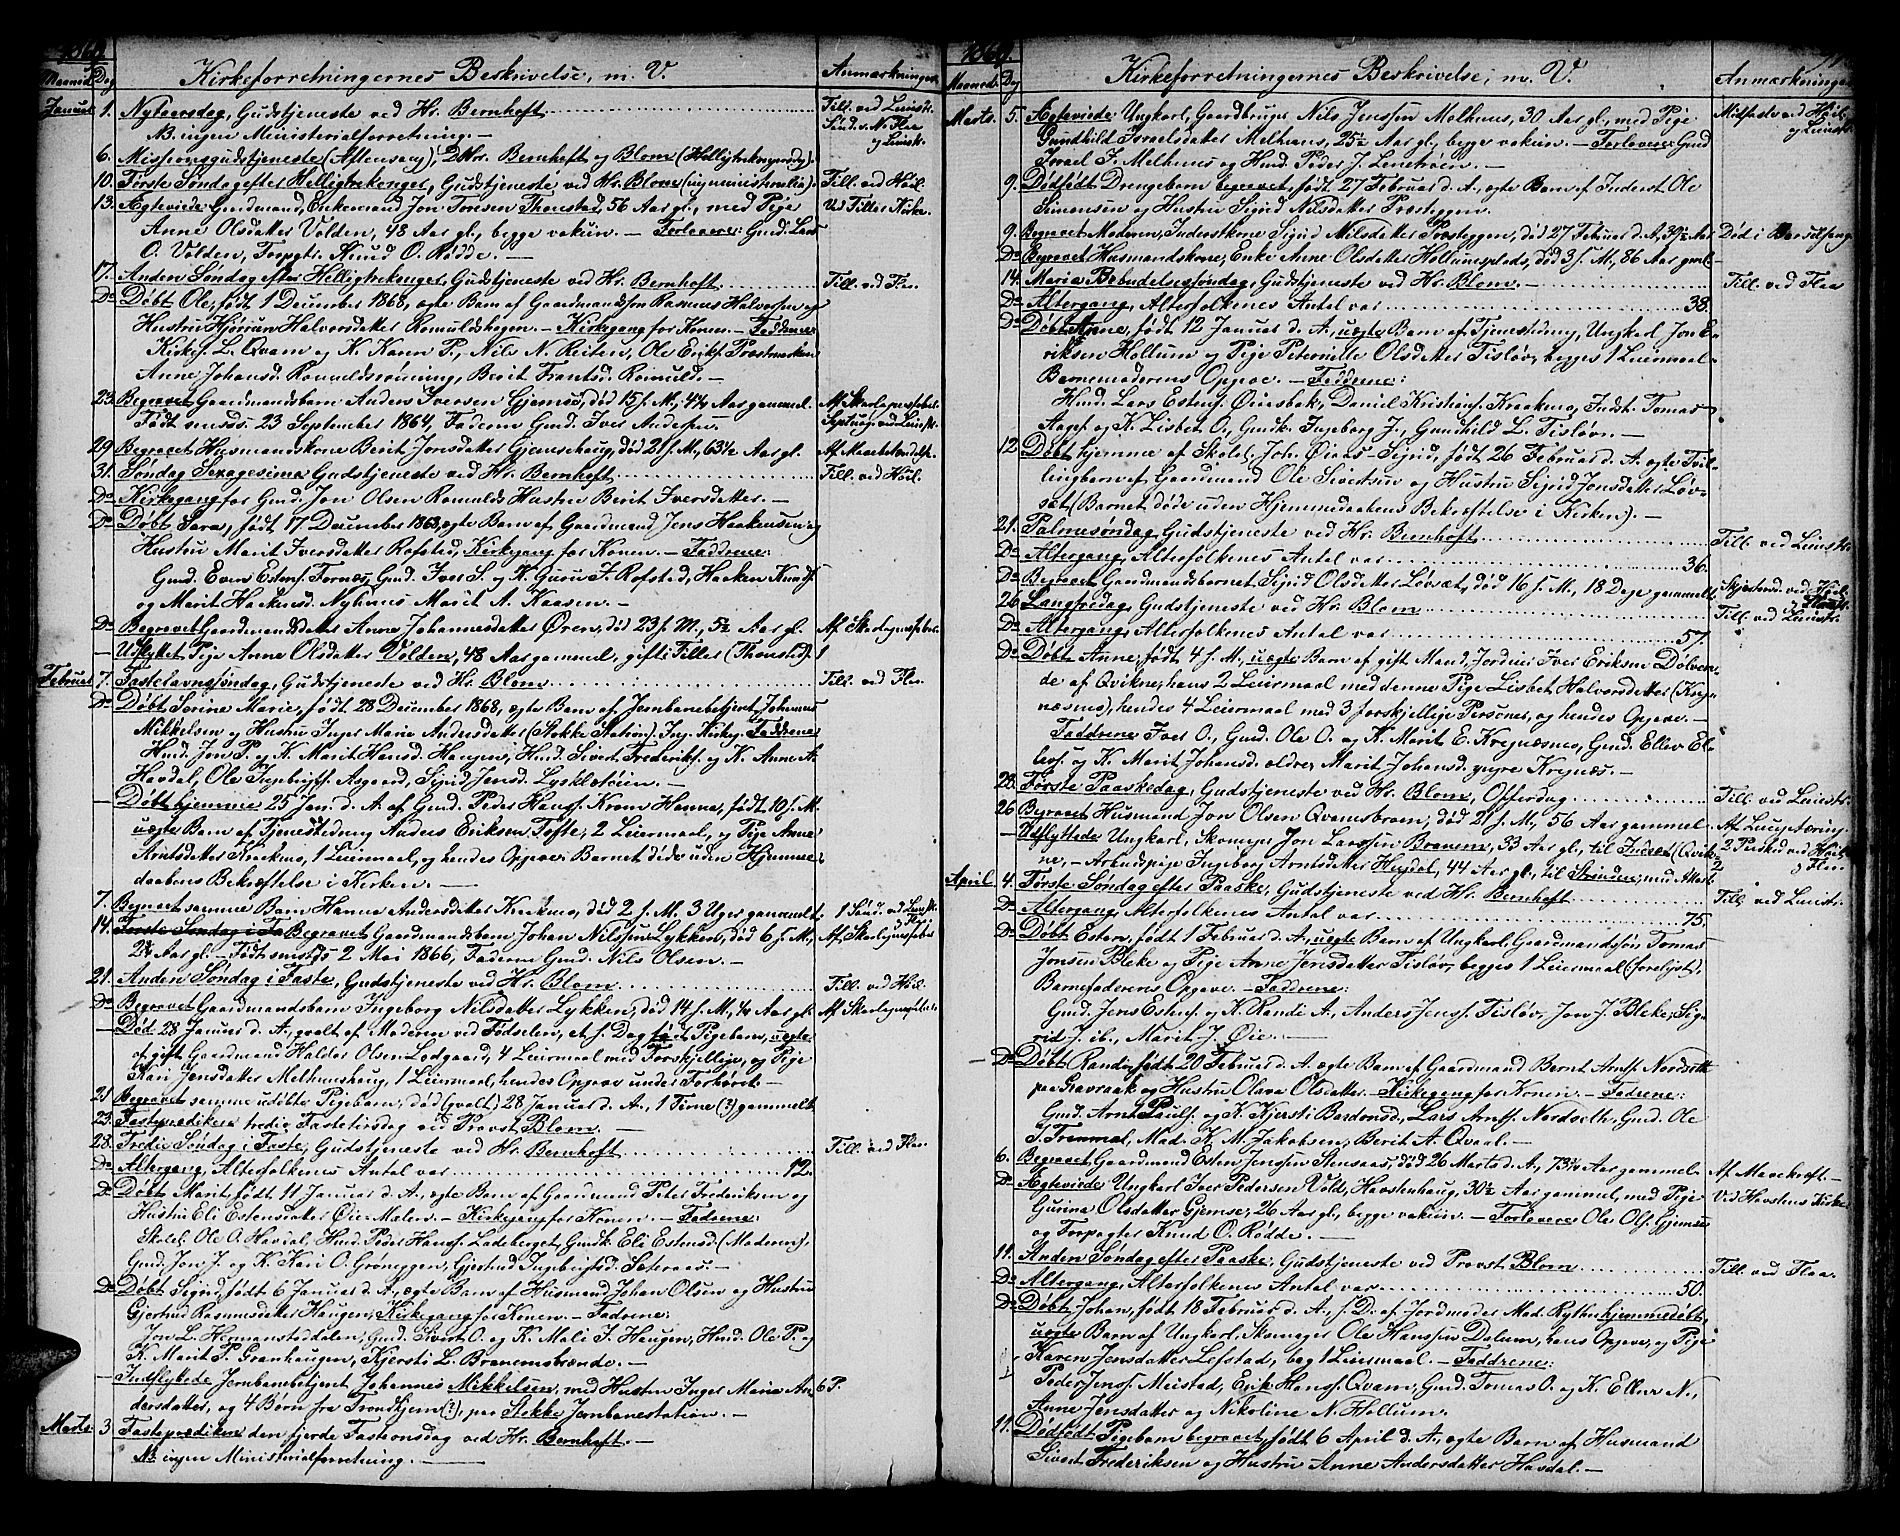 1869.
Maaned. Dag Kirkeforretningernes Beskrivelse, m. V. Anmærkninger
Januar 1. Nytaarsdag, Gudstjeneste ved Hr. Bernhoft Till. ved Leinstr.
NB. ingen Ministerialforretning. — Sönd. v. N. Flaa og Leinstr.
6. Missionsgudstjeneste (Aftensang), 2 Hrr. Bernhoft og Blom (Helligtrekongersdag).
10. Første Søndag efter Helligtrekonger, Gudstjeneste ved Hr. Blom (ing. ministerialia). Till. ved Höil.
13. Ægteviede: Gaardmand, Enkemand Jon Tonesen Thonstad, 56 Aar gl., med Pige Ved Tiller Kirke.
Anne Olsdatter Volden, 48 Aar gl., begge vakcin. — Forlovere: Gmd. Lars
O. Volden, Forpgtr. Knud O. Rödde. —
17. Anden Søndag efter Helligtrekonger, Gudstjeneste ved Hr. Bernhoft Till. ved Flaa.
Do Döbt Ole, født 1 December 1868, ægte Barn af Gaardmandssøn Rasmus Halvorsen og
Hustru Halvorsdatter Romuldshagen. — Kirkegang for Konen. — Faddrene:
Kirkes. L. Qvam og K. Karen P., Nils N. Reiten, Ole Eriks. Præstmarken
Anne Johansd. Romuldsrönning, Berit Frantsd. Romuld. —
23. Begravet Gaardmandsbarn Anders Iversen Gjemse, død 15 f. M., 4¼ Aar gammel. Af Skarlagensfeber.
Født smsds. 23 September 1864, Faderen Gmd. Iver Andersen. Septuag. ved Leinstr.
29. Begravet Husmandskone Berit Jonsdatter Gjemsehaug, død 21 f. M., 63½ Aar gl.
31. Søndag Sexagesima Gudstjeneste ved Hr. Bernhoft Till. ved Höil.
Do Kirkegang for Gmd. Jon Olsen Romulds Hustru Berit Iversdatter. —
Do Döbt Sara, født 17 December 1868, ægte Barn af Gaardmand Jens Haakensen og
Hustru Marit Iversdatter Rofstad, Kirkegang for Konen. — Faddrene:
Gmd. Even Estens. Fornæs, Gmd. Iver S. og K. Guru I. Rofstad, Haaken Knuds.
og Marit Haakensd. Nyhuus Marit A. Kaasen. —
Do Begravet Gaardmandsdatter Anne Johannesdatter Øren, død 23 f. M., 5½ Aar gl. Af Skarlagensfeber.
— Udflyttet Pige Anne Olsdatter Volden, 48 Aar gammel, gift i Tiller (Thonstad). 1
Februar 7. Fastelavnssøndag, Gudstjeneste ved Hr. Blom Till. ved Flaa.
Do Döbt Serine Marie, født 28 December 1868, ægte Barn af Jernbanebetjent Johannes
Mikkelsen og Hustru Inger Marie Andersdatter (Stokke Station). Ing. Kirkeg. Faddrene:
Husmd. Jon P. og K. Marit Hansd. Haugen, Husmd. Sivert Frederiks. og K. Anne A.
Havdal, Ole Ingebrigts. Aagaard, Sigrid Jensd. Lysklettöien. —
— Döbt hjemme 25 Jan. d. A. af Gmd. Peder Hans. Kroen Hanna, født 10 f. M.
uægte Barn af Tjenestdreng Anders Eriksen Tofte, 2 Leiermaal, og Pige Anne
Arntsdatter Kraakmo, 1 Leiermaal, og hendes Opgave: Barnet døde uden Hjemme-
daabens Bekræftelse i Kirken. —
7. Begravet samme Barn Hanna Andersdatter Kraakmo, død 2 f. M. 3 Uger gammelt. 1 Sönd. ved Leinstr. og Flaa.
14. Første Søndag i Fa Begravet Gaardmandsbarn Johan Nilssen Lykken, død 6 f. M., Af Skarlagensfeber
2¾ Aar gl. — Født smstds 2 Mai 1866, Faderen Gmd. Nils Olsen. —
21. Anden Søndag i Faste, Gudstjeneste ved Hr. Blom Till. ved Höil.
Do Begravet Gaardmandsbarn Ingeborg Nilsdatter Lykken, død 14 f. M., ¼ Aar gl. Af Skarlagensfeber.
— Død 28 Januar d. A., qvalt af Moderen ved Fødselen, et s. Dag født Pigebarn, uægte
af gift Gaardmand Haldor Olsen Lodgaard, 4 Leiermaal med Forskjellige, og Pige
Kari Jensdatter Melhuushaug, 1 Leiermaal, hendes Opgave under Forhöret. —
21 Begravet samme udöbte Pigebarn, død (qvalt) 28 Januar d. A., 1 Time (?) gammelt
23. Fasteprædiken tredie Fastetirsdag ved Provst Blom. —
28. Tredie Søndag i Faste, Gudstjeneste ved Hr. Bernhoft Till. ved Flaa.
Do Altergang, Alterfolkenes Antal var 12.
Do Döbt Marit, født 11 Januar d. A., ægte Barn af Gaardmand Peter Frederiksen og
Hustru Eli Estensdatter Øie-Mælen. — Kirkegang for Konen. — Fadrene:
Skolel. Ole O. Havdal, Husmd. Peder Hans. Ladeberget, Gmdk. Eli Estensd. (Moderen),
Gmd. Jon J. og K. Kari O. Grøneggen, Gjertrud Ingebrigtsd. Sæteraas. —
Do Döbt Sigrid, født 6 Januar d. A., ægte Barn af Husmand Johan Olsen og Hustru
Gjertrud Rasmusdatter Haugen, Kirkegang for Konen. — Fadrene:
Jon L. Hermanstaddalen, Gmd. Sivert O. og K. Mali I. Haugen, Husmd. Ole P. og
K. Marit P. Granhaugen, Kjersti L. Branemsbrænde. —
— Indflyttede Jernbanebetjent Johannes Mikkelsen, med Hustru Inger Marie An- 6 P.
dersdatter, og 4 Børn fra Trondhjem (?), paa Stokke Jernbanestation. —
Marts 3 Fasteprædiken den fjerde Fasteonsdag ved Hr. Bernhoft. —
NB ingen Ministerialforretning. —
1869.
Maaned. Dag Kirkeforretningernes Beskrivelse, m. V. Anmærkninger
Marts. 5. Ægteviede Ungkarl, Gaardbruger Nils Jenssen Melhuus, 30 Aar gl., med Pige Midfaste ved Höil. og Leinstr.
Gunhild Israelsdatter Melhuus, 25½ Aar gl., begge vakcin. — Forlovere: Gmd
Israel I. Melhuus og Husmd. Peder J. Lenetröen. —
9. Dødfødt Drengebarn begravet, født 27 Februar d. A., ægte Barn af Inderst Ole
Simonsen og Hustru Sigrid Nilsdatter Præsteggen.
9. Begravet Moderen, Inderstkone Sigrid Nilsdatter Præsteggen, død 27 Februar d. A., 39½ Aar Død i Barselseng
Do Begravet Husmandskone, Enke Anne Olsdatter Hollumsplads, død 3 f. M., 86 Aar gml.
14. Mariæ Bebudelsessøndag, Gudstjeneste ved Hr. Blom. Till. ved Flaa
Do Altergang, Alterfolkenes Antal var 38.
Do Döbt Anne, født 12 Januar d. A., uægte Barn af Tjenestdreng, Ungkarl Jon E-
riksen Hollum og Pige Peternille Olsdatter Tisløv, begges 1 Leiermaal
Barnemoderens Opgave. — Faddrene:
Husmd. Lars Estens. Øiesbak, Daniel Kristians. Kraakmo, Indst. Tomas
Aages. og K. Lisbet O., Gmdk. Ingeborg J., Gunhild L. Tisløv. —
12 Döbt hjemme af Skolel. Joh. Øiaas Sigrid, født 26 Februar d. A. ægte Tvil-
lingbarn af Gaardmand Ole Sivertsen og Hustru Sigrid Jonsdatter Løv-
sæt (Barnet døde uden Hjemmedaabens Bekræftelse i Kirken). —
21. Palmesøndag, Gudstjeneste ved Hr. Bernhoft Till. ved Leinstr.
Do Altergang, Alterfolkenes Antal var 36.
Do Begravet Gaardmandsbarnet Sigrid Olsdatter Løvsæt, død 16 f. M., 18 Dage gammelt. Skjærtorsd. ved Höil.
26. Langfredag, Gudstjeneste ved Hr. Blom Till. ved Leinstr.
Do Altergang, Alterfolkenes Antal var 57.
Do Döbt Anne, født 4 f. M., uægte Barn af gift Mand, Jorduier Iver Eriksen Dølven-
de af Qvikne, hans 2 Leiermaal med denne Pige Lisbet Halvorsdatter (Kreg-
næsmo), hendes 4 Leiermaal med 3 forskjellige Personer, og hendes Opgave. —
Faddrene Iver O., Gmd. Ole O. og K. Marit E. Kregnæsmo, Gmd. Ellev El-
levs. og K. Marit Johansd. ældre, Marit Johansd. yngre Kregnæs. —
28. Første Paaskedag, Gudstjeneste ved Hr. Blom, Offerdag Till. ved Leinstr.
26 Begravet Husmand Jon Olsen Qvamsbroen, død 21 f. M., 56 Aar gammel. Af Lungetæring
— Udflyttede Ungkarl, Skomager Jon Larssen Branem, 33 Aar gl., til Indset (Qvik- 2 Paasked. ved Höil. og Flaa
ne, — Arbeidspige Ingeborg Arntsdatter Havdal, 44 Aar gl., til Strinden, med Attest
April 4. Første Søndag efter Paaske, Gudstjeneste ved Hr. Bernhoft Till. ved Leinstr.
Do Altergang, Alterfolkenes Antal var 75.
Do Döbt Esten, født 1 Februar d. A., uægte Barn af Ungkarl, Gaardmandssøn Tomas
Jonsen Bleke og Pige Anne Jensdatter Tisløv, begges 1 Leiermaal (forelyst),
Barnefaderens Opgave. — Faddrene:
Gmd. Jens Estens. og K. Randi A., Anders Jens. Tisløv, Jon J. Bleke, Sig-
rid J. ib., Marit J. Øie. —
Do Döbt Randi født 20 Februar d. A. ægte Barn af Gaardmand Bernt Arnts. Nordseth
paa Gravraak og Hustru Olava Olsdatter. — Kirkegang for Konen. — Fadrene:
Gmd. Arnt Pauls. og K. Kjersti Bardosd., Lars Arnts. Nordseth, Gmd. Ole
T. Tremmel, Mad. K. M. Jakobsen, Berit A. Qvaal. —
6. Begravet Gaardmand Esten Jensen Stensaas, død 26 Marts d. A., 73¾ Aar gammel.
Do Ægteviede Ungkarl Iver Pedersen Vold, Havstenhaug, 30½ Aar gammel, med Pige Ved Havstens Kirke
Gurina Olsdatter Gjemse, 26 Aar gl., begge vakcin. — Forlovere Ole Ols. Gjemse
og Forpagter Knud O. Rödde. —
11. Anden Søndag efter Paaske, Gudstjeneste ved Provst Blom Till. ved Flaa.
Do Altergang, Alterfolkenes Antal var 50.
Do Döbt Johan, født 18 Februar d. A., s. D. af Jordmoder Mad. Rytter hjemmedöbt,
uægte Barn af Ungkarl, Skomager Ole Hanssen Dalum, hans Opgave, og Pige
Karen Jensdatter Lefstad, beg. 1 Leiermaal. — Faddrene:
Peder Jens. Meistad, Erik Hans. Qvam, Gmd. Tomas O. og K. Ellen N.,
Anne Jensdatter og Nikoline N. Hollum.
11. Dødfødt Pigebarn begravet, født 6 April d. A., ægte Barn af Husmand
Sivert Frederiksen og Hustru Anne Andersdatter Havdal. —